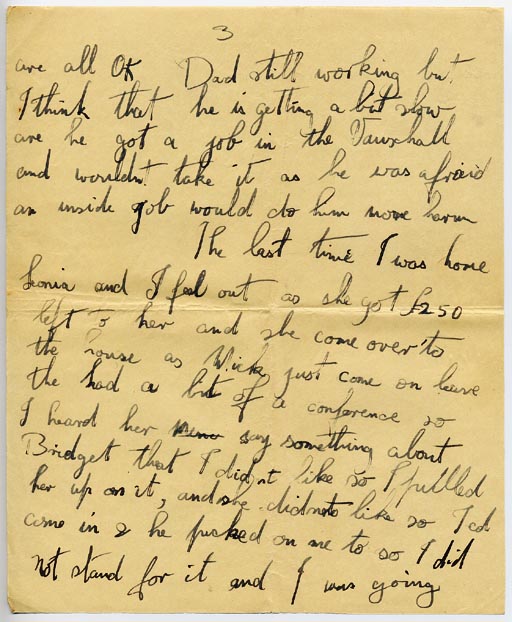 3
are all OK Dad still working but
I think that he is getting a bit slow
are he got a job in the Vauxhall
and wouldn't take it as he was afraid
an inside job would do him more harm
The last time I was home
Leonia and I feel out as she got £250
left to her and she come over to
the house as Mick just come on leave
the had a bit of a conference so
I heard her say something about
Bridget that I didnt like so I pulled
her up on it, and she did not like so Ted
came in & he picked on me to so I did
not stand for it and I was going